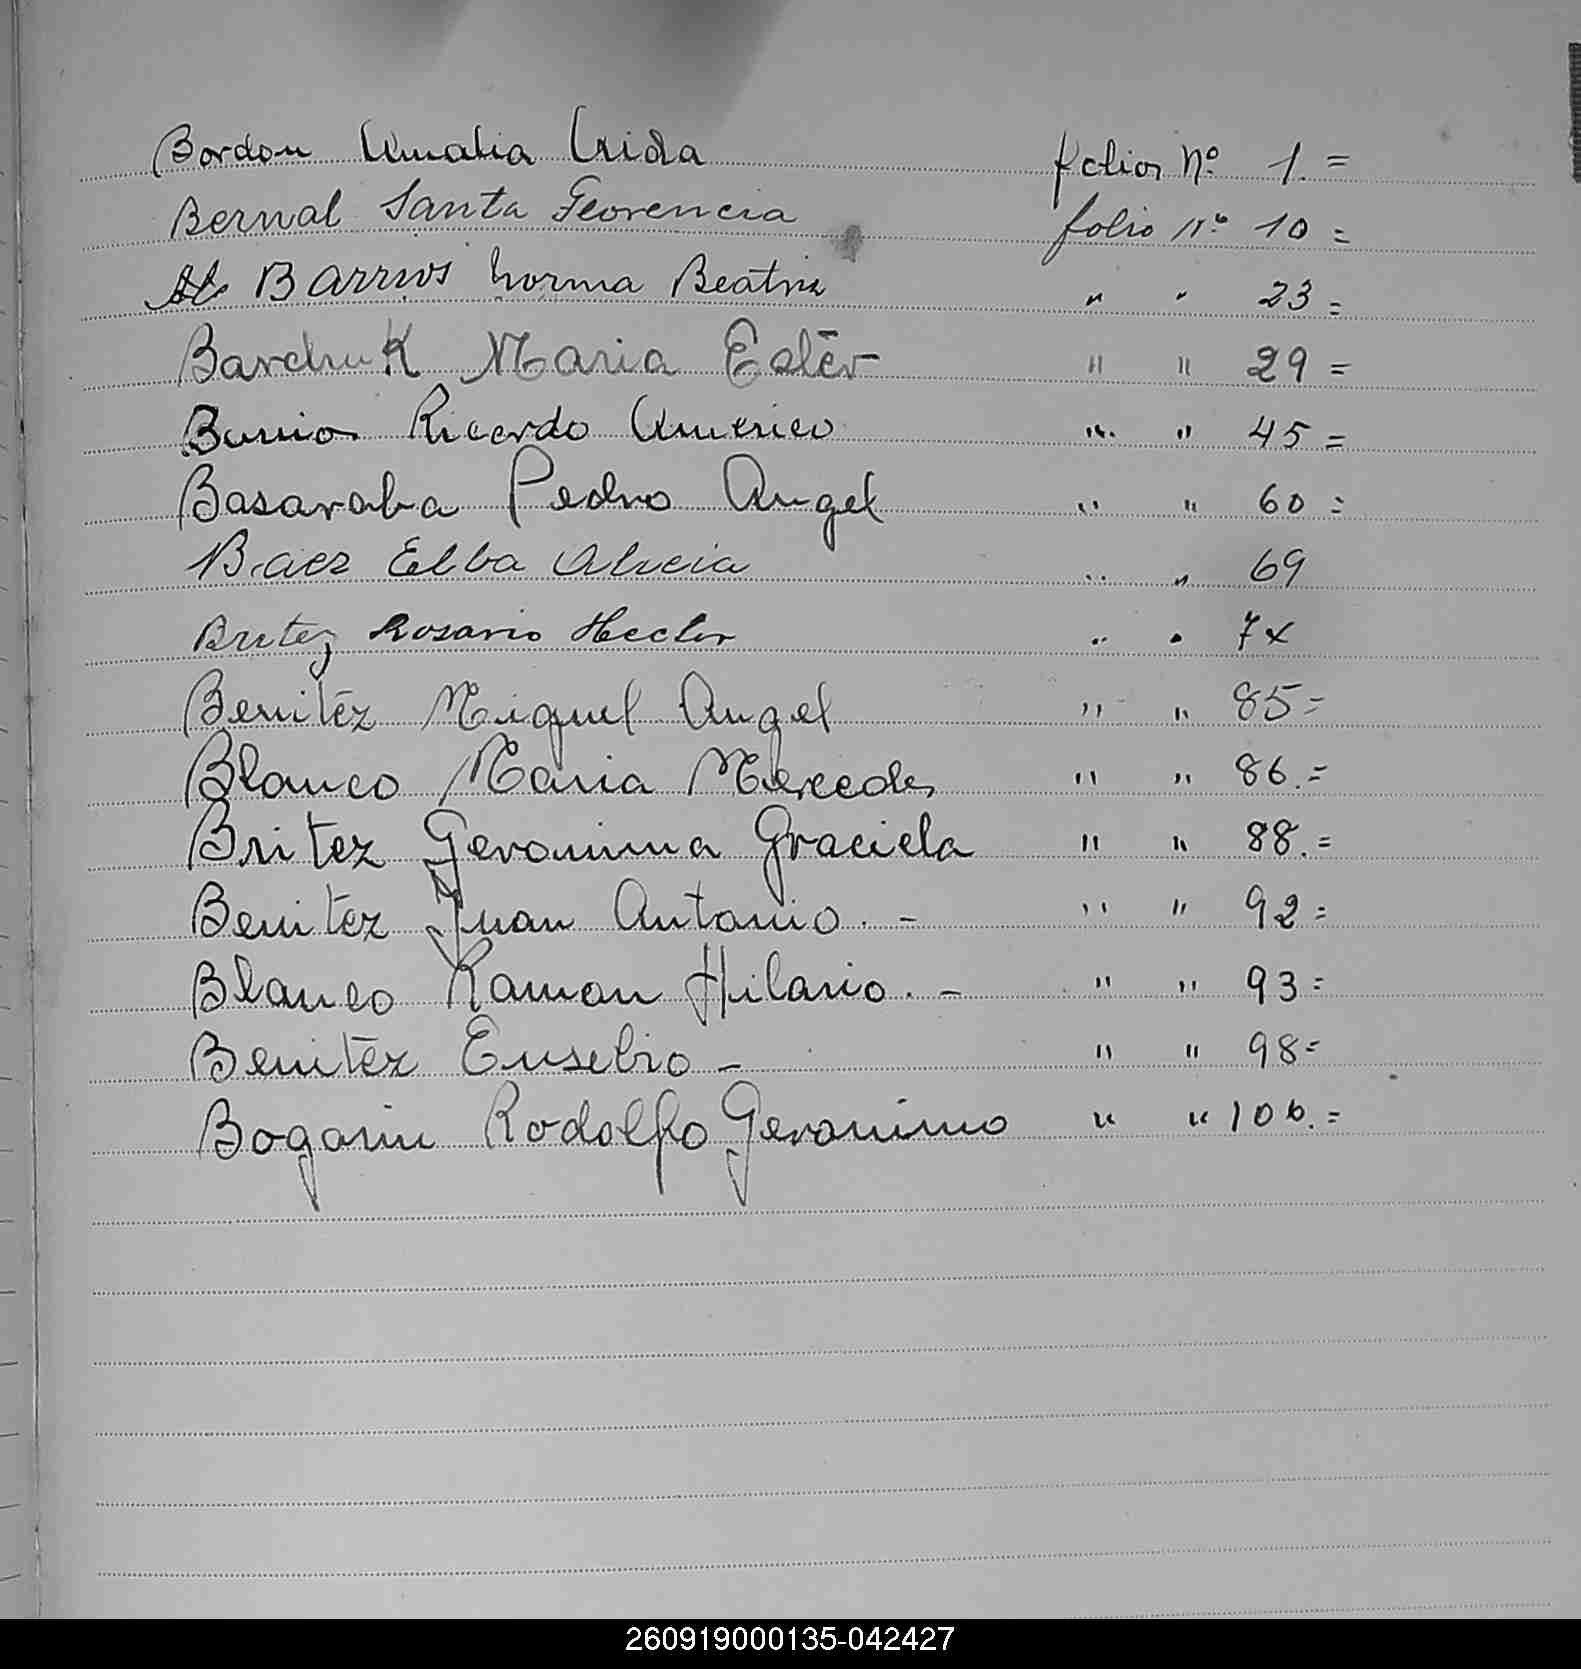 Bordon Amalia Lida folios Nº 1.=
Bernal Santa Florencia folio Nº 10=
Barrios Norma Beatriz " " 23=
Barchuk Maria Estēr " " 29=
Barrios Ricardo Americo " " 45=
Basaraba Pedro Angel " " 60=
Baez Elba Alicia " " 69
Britez Rosario Hector " " 7
Benitēz Miguel Angel " " 85=
Blanco Maria Mercedes " " 86.=
Britez Geronima Graciela " " 88.=
Benitēz Juan Antonio.- " " 92=
Blanco Ramon Hilario.- " " 93=
Benitēz Eusebio- " " 98=
Bogarin Rodolfo Geronimo " " 100.=
260919000135-042427